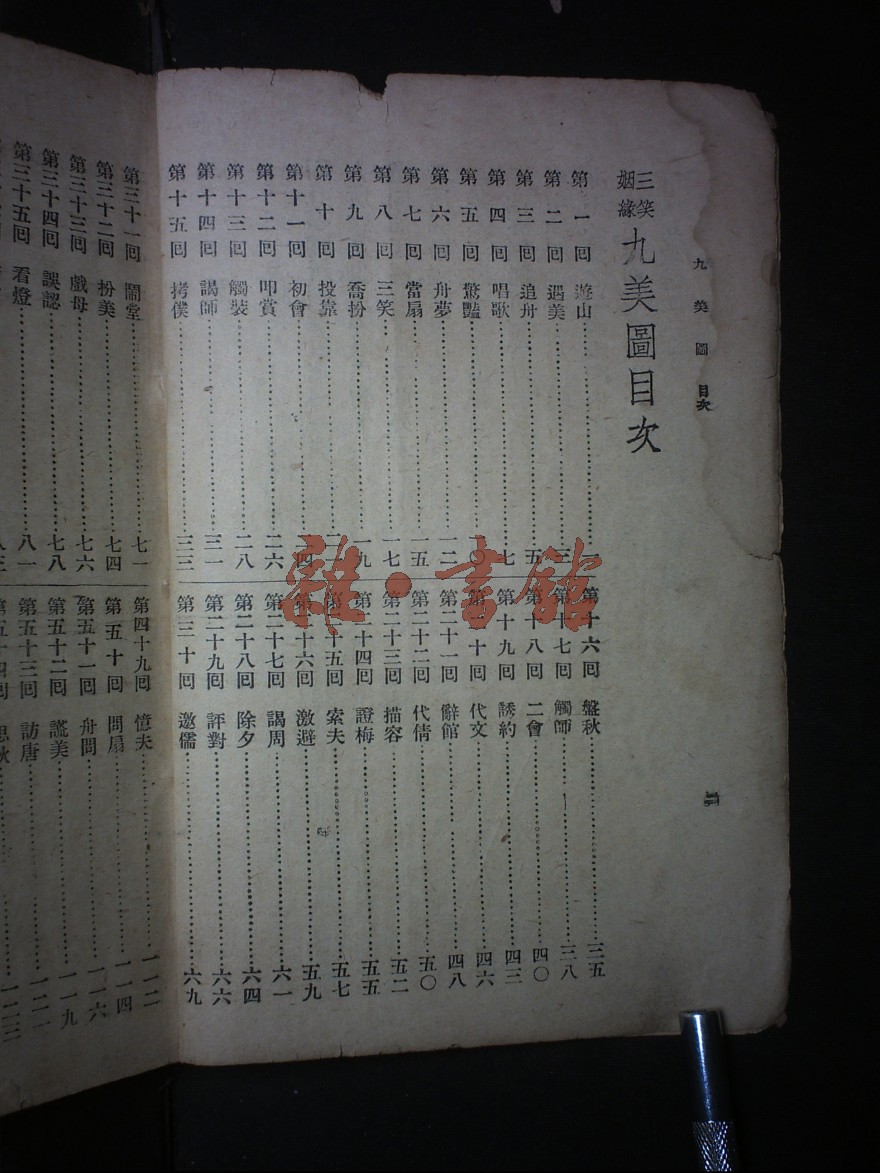 九美圖 目次
三笑姻緣 九美圖目次
第一回 遊山……一
第二回 遇美……三
第三回 追舟……五
第四回 唱歌……七
第五回 驚豔……一〇
第六回 舟夢……一二
第七回 當扇……一五
第八回 三笑……一七
第九回 喬扮……一九
第十回 投靠……二一
第十一回 初會……二四
第十二回 叩賞……二六
第十三回 觸裝……二八
第十四回 謁師……三一
第十五回 拷僕……三三
第十六回 盤秋……三五
第十七回 觸師……三八
第十八回 二會……四〇
第十九回 誘約……四三
第二十回 代文……四六
第二十一回 辭館……四八
第二十二回 代倩……五〇
第二十三回 描容……五二
第二十四回 證梅……五五
第二十五回 索夫……五七
第二十六回 激避……五九
第二十七回 謁周……六一
第二十八回 除夕……六四
第二十九回 評對……六六
第三十回 邀儒……六九
第三十一回 鬧堂……七一
第三十二回 扮美……七四
第三十三回 戲母……七六
第三十四回 誤認……七八
第三十五回 看燈……八一
第四十九回 憶夫……一一二
第五十回 問扇……一一四
第五十一回 舟問……一一六
第五十二回 謊美……一一九
第五十三回 訪唐……一二一
第五十四回 思秋……一二三
雜·書館